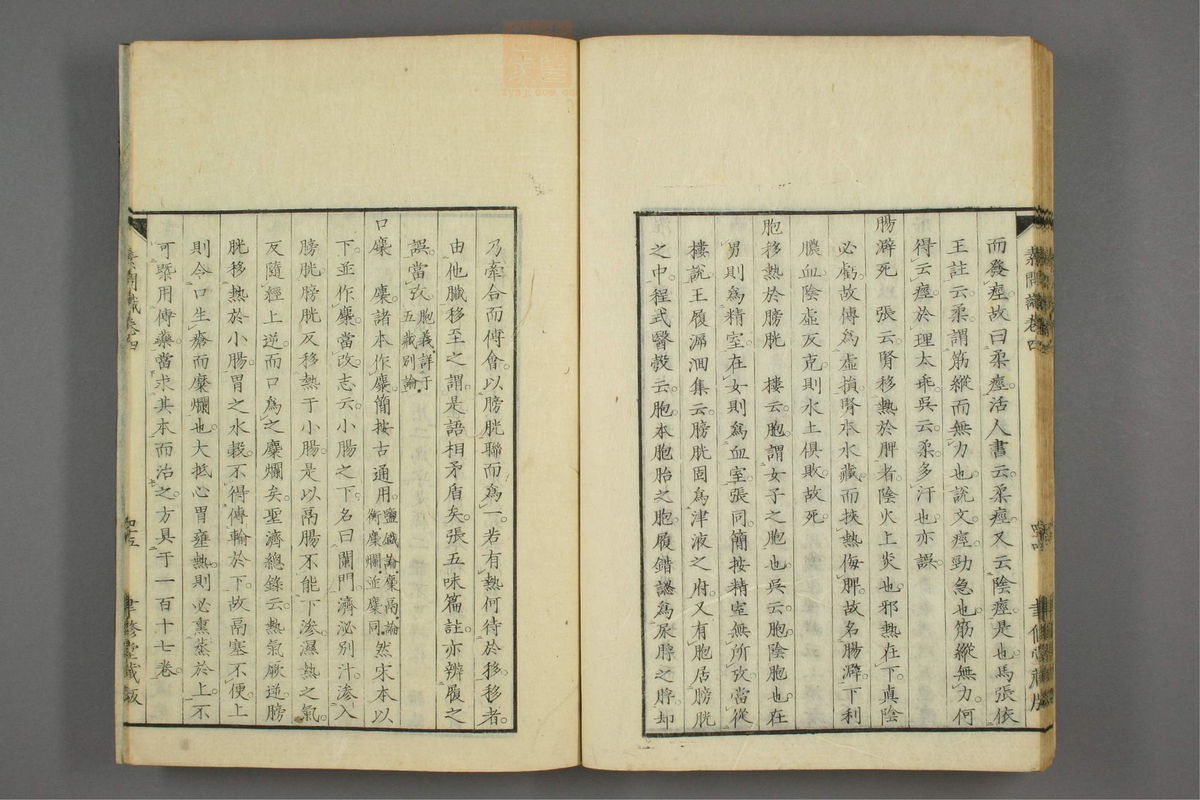 而發痙。故曰柔痙。活人書云。柔痙。又云陰痙。是也。馬張依
王註云。柔。謂筋縱而無力也。説文。痙。勁急也。筋縱無力。何
得云痙。於理太乖。吳云。柔。多汗也。亦誤。
腸澼死　張云。腎移熱於脾者。陰火上炎也。邪熱在下。真陰
必虧。故傳爲虛損。腎本水藏。而挾熱侮脾。故名腸澼。下利
膿血。陰虛反克。則水土俱敗。故死。
胞移熱於膀胱　樓云。胞。謂女子之胞也。吳云。胞。陰胞也。在
男則爲精室。在女則爲血室。張同。簡按精室無所攷。當從
樓説。王履溯洄集云。膀胱固爲津液之府。又有胞居膀胱
之中。程式醫彀云。胞本胞胎之胞。履錯認爲尿脬之脬。却
素問識卷四
乃牽合而傅會。以膀胱聯而爲一。若有熱何待於移。移者。
由他臟移至之謂。是語相矛盾矣。張五味篇註。亦辨履之
誤。當攷。胞義詳于五藏別論。
口麋　麋。諸本作糜。簡按古通用。鹽鐵論。麋鬲。論衡。麋爛。並糜同。然宋本以
下並作糜。當改。志云。小腸之下。名曰闌門。濟泌別汁。滲入
膀胱。膀胱反移熱于小腸。是以鬲腸不能下滲。濕熱之氣。
反隨經上逆。而口爲之糜爛矣。聖濟總錄云。熱氣厥逆。膀
胱移熱於小腸。胃之水穀。不得傳輸於下。故鬲塞不便。上
則令口生瘡而糜爛也。大抵心胃壅熱。則必熏蒸於上。不
可槩用傅藥。當求其本而治之。方具于一百十七卷。
聿修堂藏版